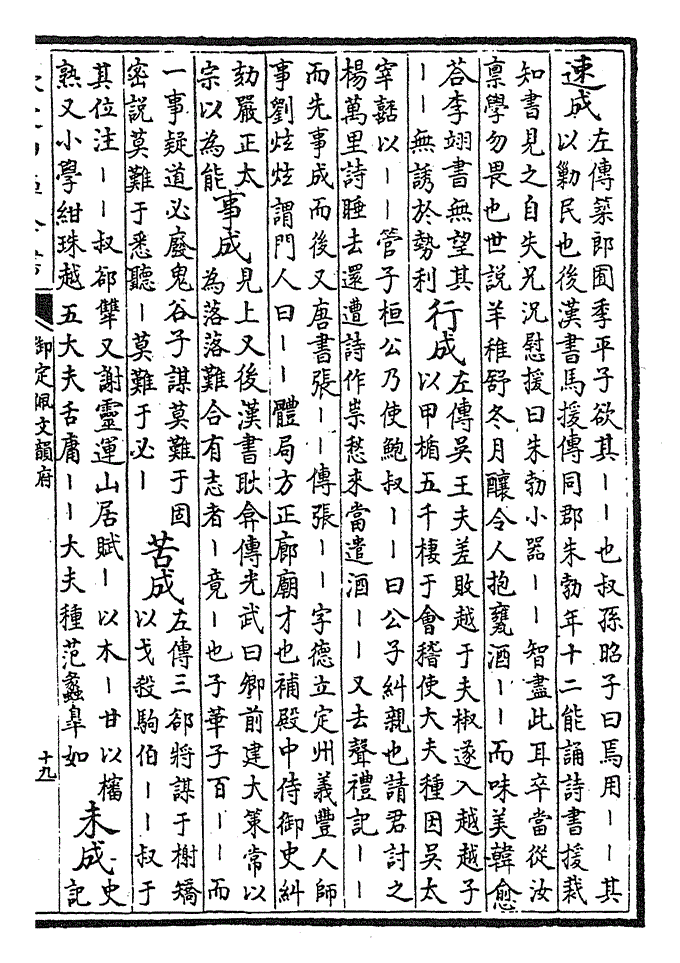 速成 左傳築郎囿季平子欲其——也叔孫昭子曰焉用——其
以勦民也後漢書馬援傳同郡朱勃年十二能誦詩書援裁
知書見之自失兄況慰援曰朱勃小器——智盡此耳卒當從汝
禀學勿畏也世說羊稚舒冬月釀令人抱甕酒——而味美韓愈
荅李翊書無望其
——無誘於勢利
行成 左傳吳王夫差敗越于夫椒遂入越越子
以甲楯五千棲于會稽使大夫種因吳太
宰嚭以——管子桓公乃使鮑叔——曰公子糾親也請君討之
楊萬里詩睡去還遭詩作祟愁來當遣酒——又去聲禮記——
而先事成而後又唐書張——傳張——字德立定州義豐人師
事劉炫炫謂門人曰——體局方正廊廟才也補殿中侍御史糾
劾嚴正太
宗以為能
事成 見上又後漢書耿弇傳光武曰卿前建大策常以
為落落難合有志者—竟—也子華子百——而
一事疑道必廢鬼谷子謀莫難于周
密說莫難于悉聽—莫難于必—
苦成 左傳三郤將謀于榭矯
以戈殺駒伯——叔于
其位注——叔郤犨又謝靈運山居賦—以木—甘以㯕
熟又小學紺珠越五大夫舌庸——大夫種范蠡皐如
未成 史
記
御定佩文韻府
十九